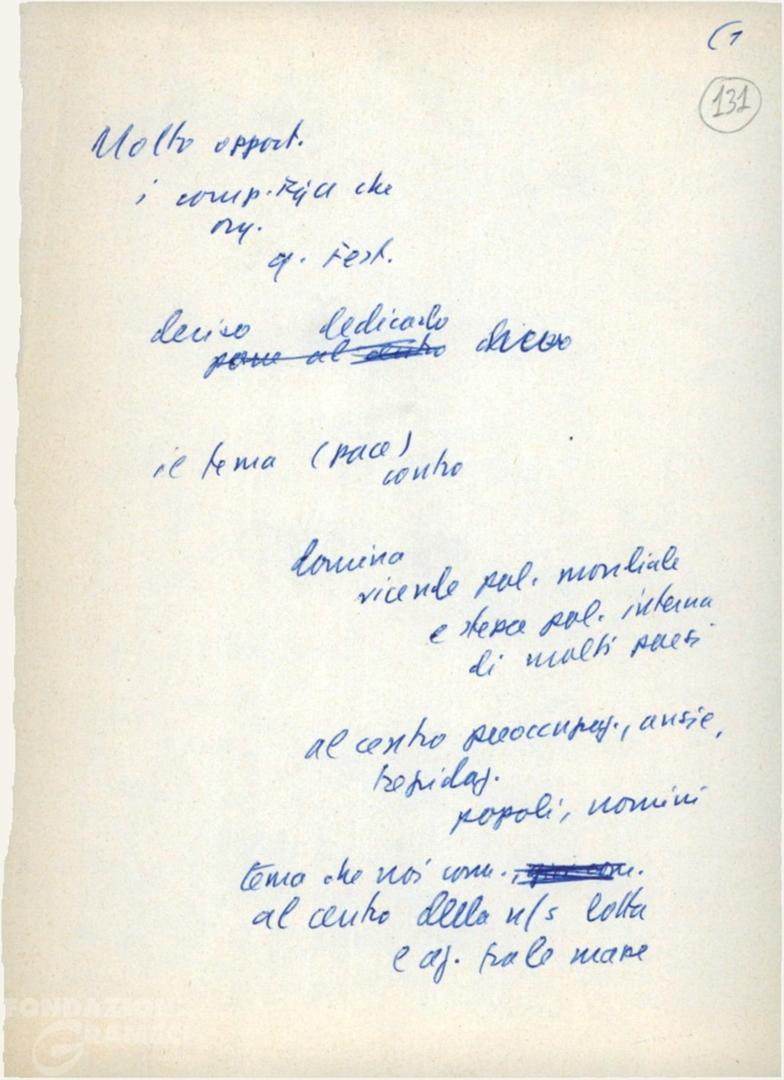 (1
131
Molto opport.
i comp. che
org.
q. Fest.
deciso dedicarlo
porre al centro
il tema (pace)
centro
domina
vicende pol. mondiale
e stessa pol. interna
di molti paesi
al centro preoccupaz., ansie,
trepidaz.
popoli, uomini
tema che noi com.,
al centro della n/s lotta
e az. tra le masse
FONDAZIONE
GRAMSCI